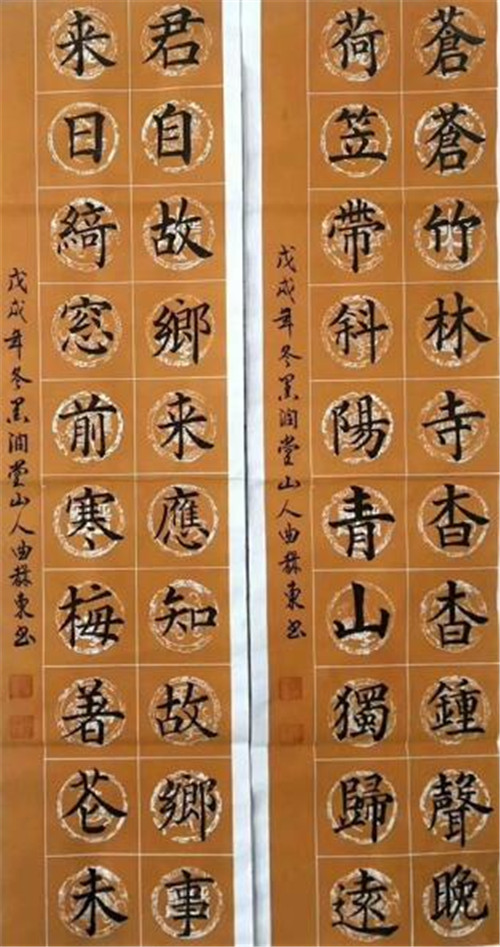 蒼蒼竹林寺杳杳鍾聲晚
荷笠帶斜陽青山獨歸遠
戊戌年冬墨润堂山人曲東书
君自故鄉来應知故鄉事
来日綺窓前寒梅著花未
戊戌年冬墨润堂山人曲東书